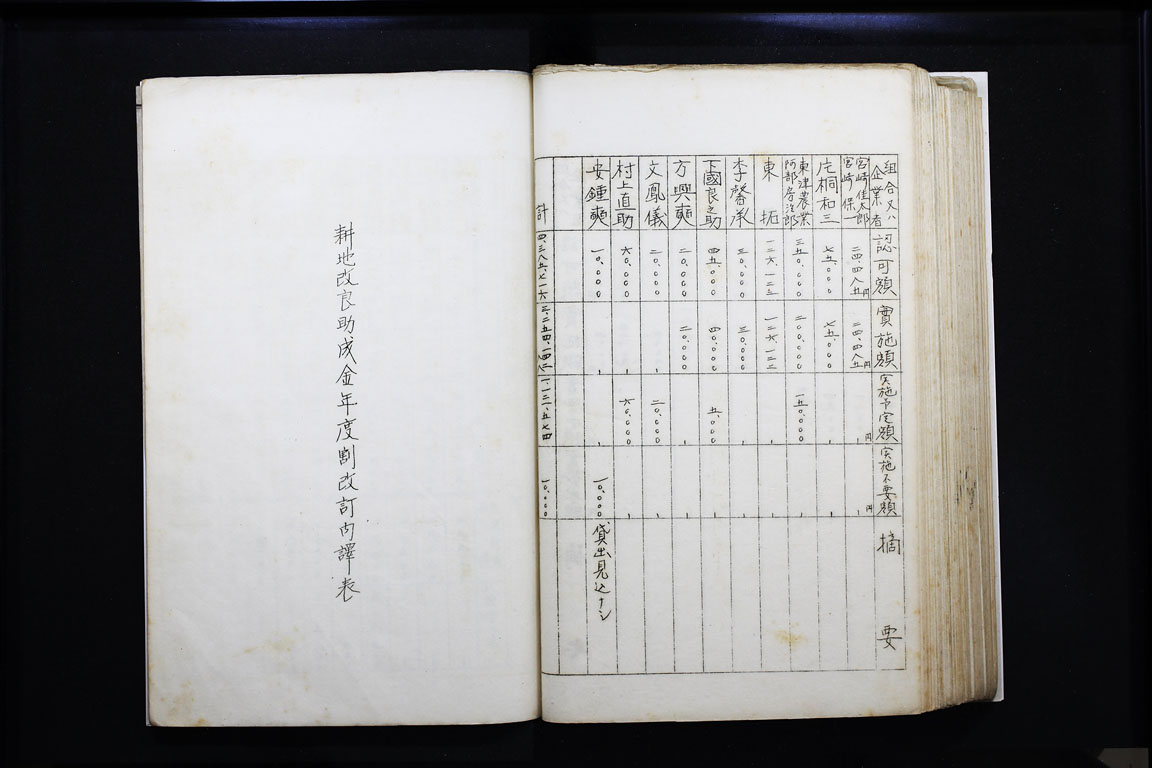 組合又ハ企業者 認可額 實施額 実施予定額 実施不要額 摘要
宮崎佳太郎 宮崎保一 二四、四八五円 二四、四八五円 、円 、円
片桐和三 七五、〇〇〇 七五、〇〇〇 、 、
東津農業 阿部房治郎 三五〇、〇〇〇 二〇〇、〇〇〇 一五〇、〇〇〇 、
東拓 一二六、一二三 一二六、一二二 、 、
李馨承 三〇、〇〇〇 三〇、〇〇〇 、 、
下國良之助 四五、〇〇〇 四〇、〇〇〇 五、〇〇〇 、
方興奭 二〇、〇〇〇 二〇、〇〇〇 、 、
文鳳儀 二〇、〇〇〇 、 二〇、〇〇〇 、
村上直助 六〇、〇〇〇 、 六〇、〇〇〇 、
安鍾奭 一〇、〇〇〇 、 、 一〇、〇〇〇 貸出見込ナシ
計 四、三八五、七一六 一〇、〇〇〇
耕地改良助成金年度割改訂内譯表